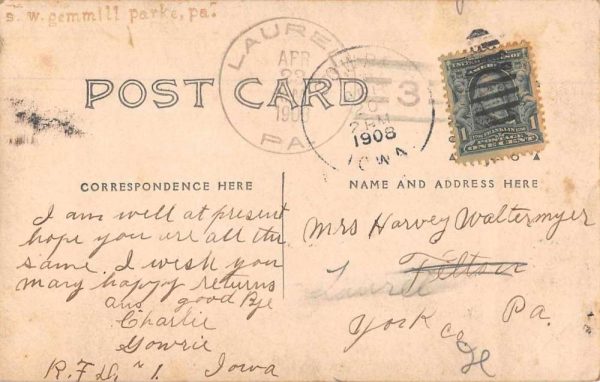 s. w. gemmill parke, pa.
LAUREL
APR
22
1908
PA.
3
2 PM
1908
IOWA
POST CARD
1 1
POSTAGE
ONE CENT
CORRESPONDENCE HERE
NAME AND ADDRESS HERE
I am well at present
hope you are all the
same. I wish you
many happy returns
and good Bye
Charlie
Gowrie
R.F.D. 1. Iowa
Mrs Harvey Waltermyer
Filton
Laurel
York Co. Pa.